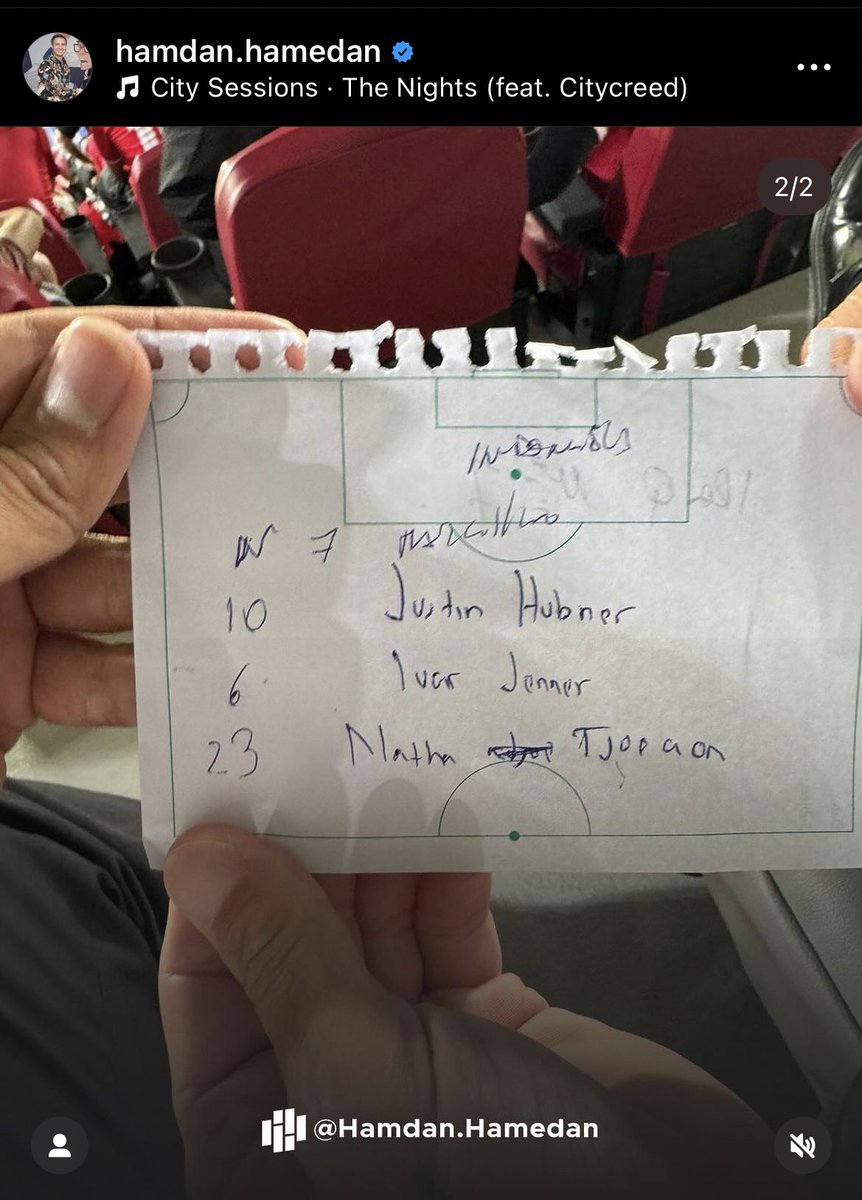 hamdan.hamedan
City Sessions · The Nights (feat. Citycreed)
2/2
INDONESIA
N° 7 MARCELINO
10 Justin Hubner
6 Ivar Jenner
23 Natha Tjoeaon
@Hamdan.Hamedan